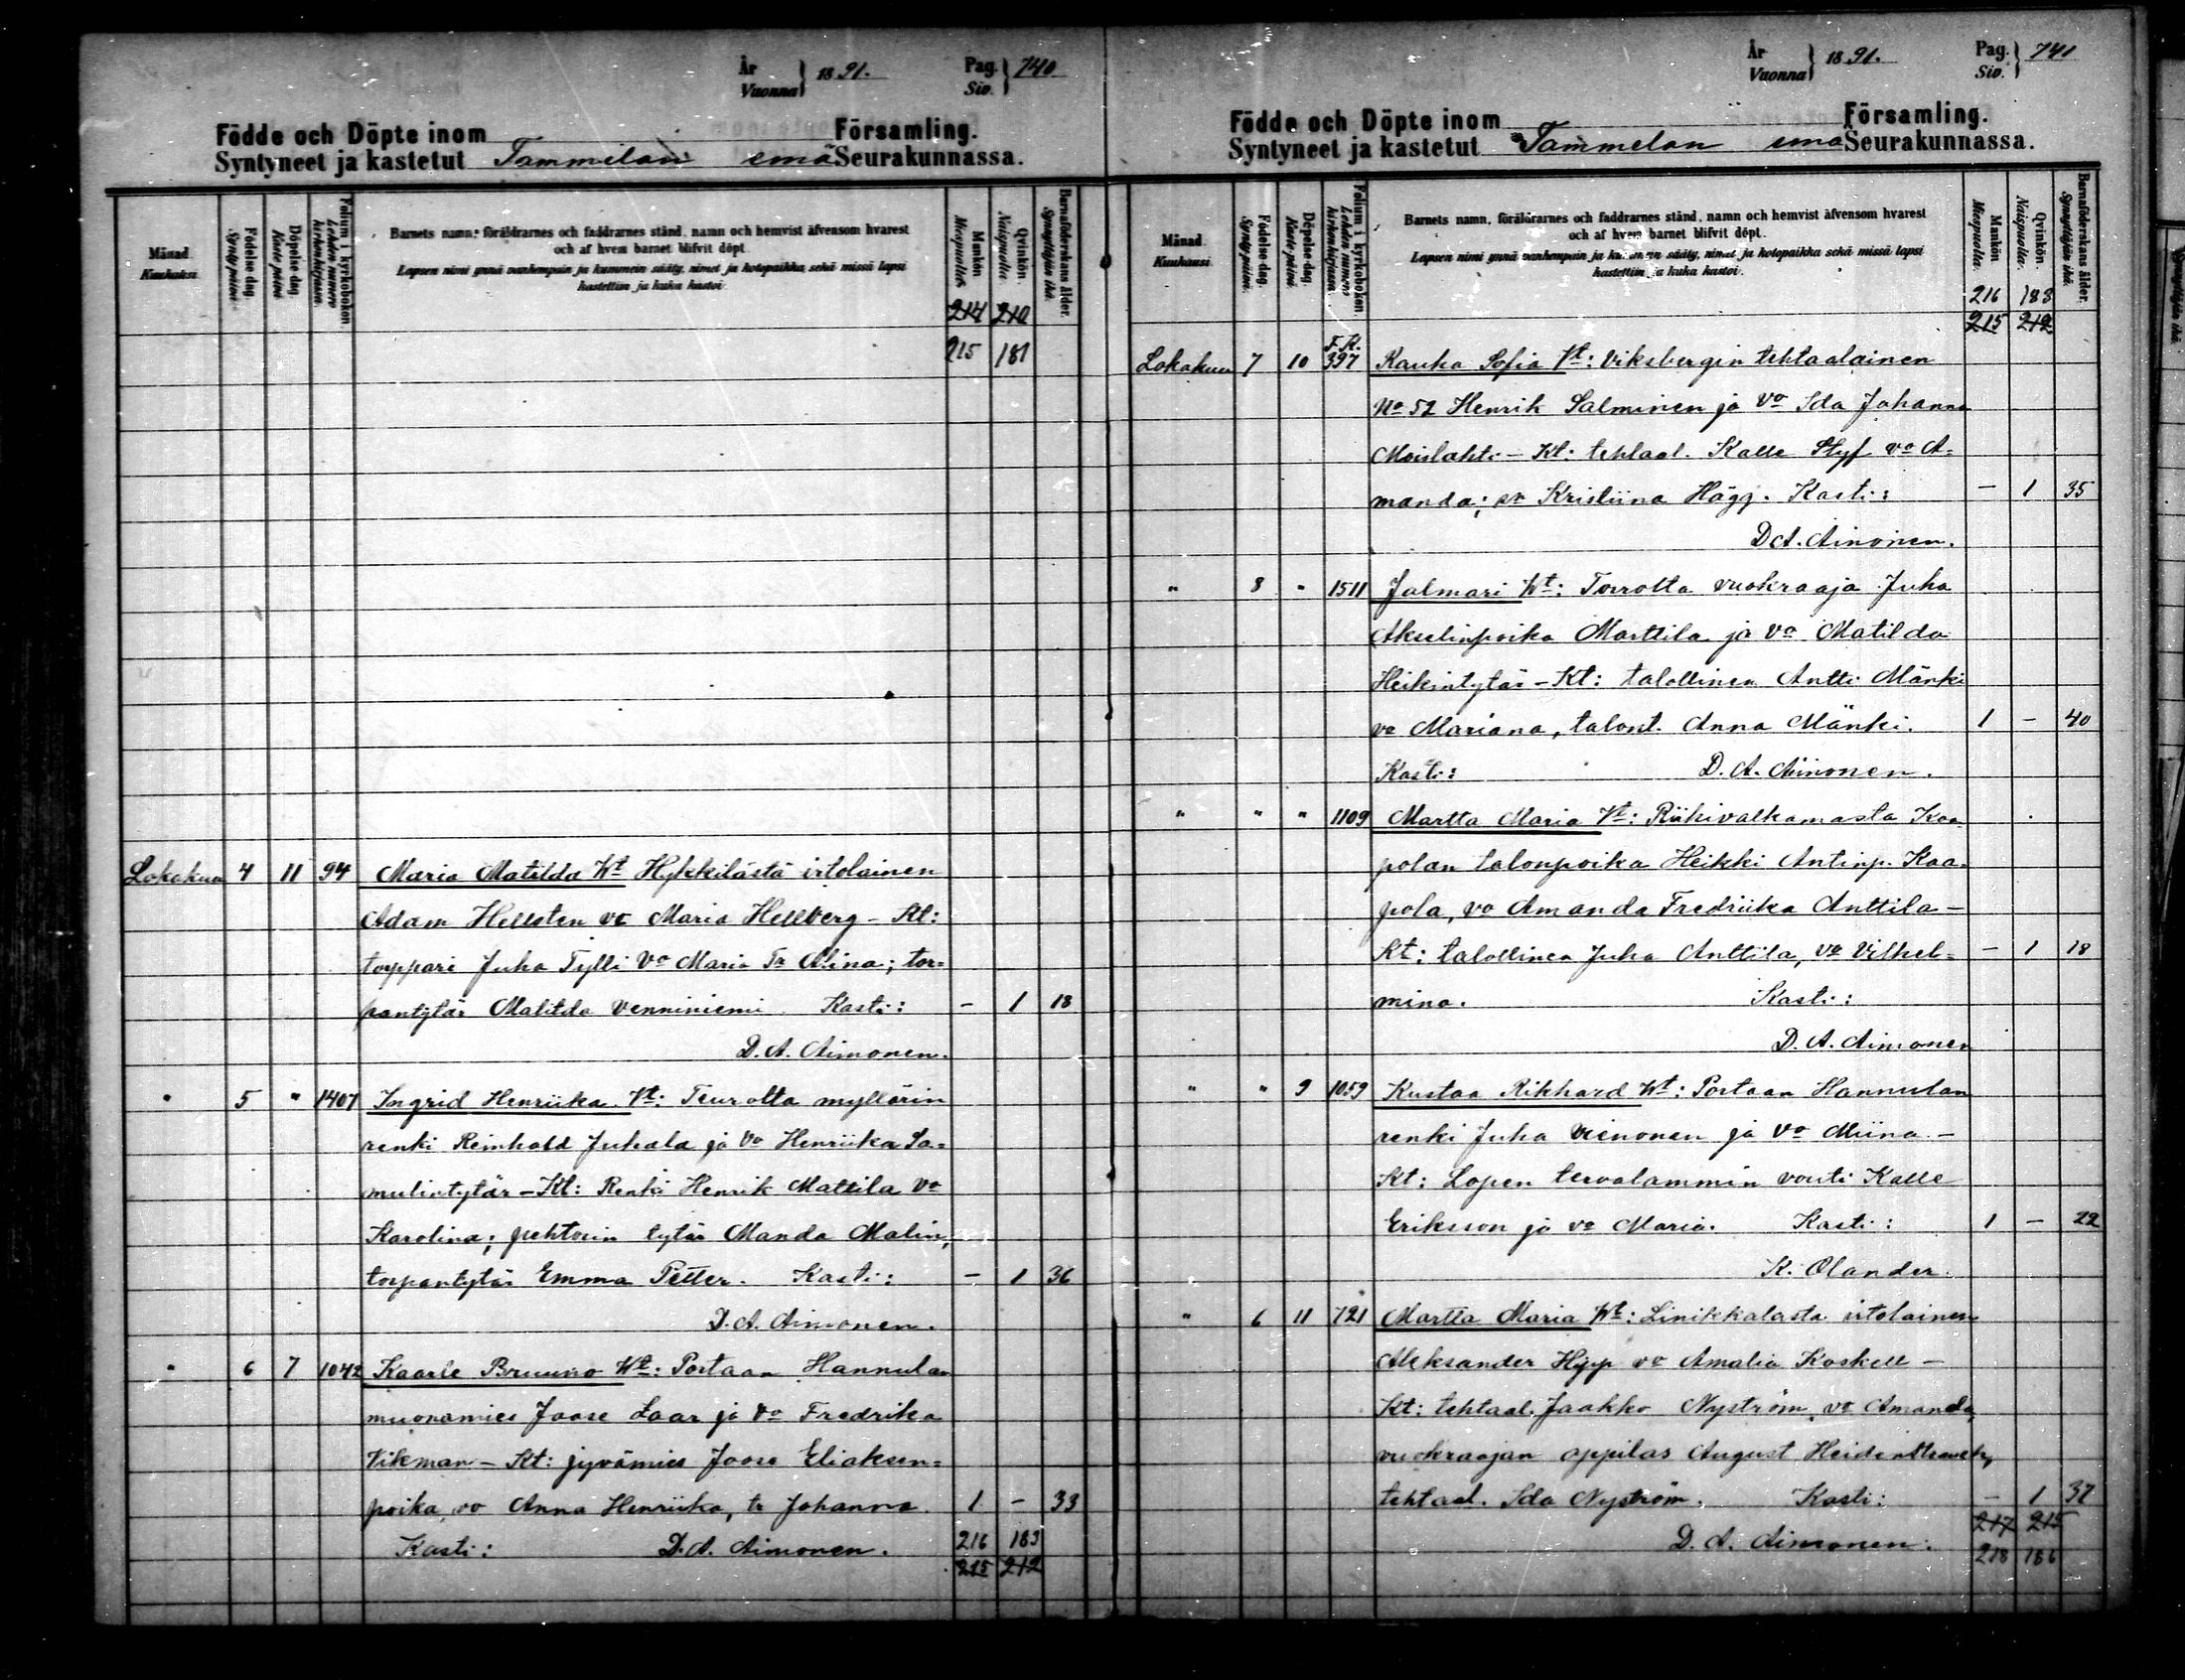 År
Vuonna } 1891. Pag. Siv. } 740
Födde och Döpte inom Församling.
Syntyneet ja kastetut Tammelan emä Seurakunnassa.
Månad. Kuukausi.
Födelse dag. Synty päivä.
Döpelse dag. Kaste päivä
Folium i kyrkoboken. Lehden numero kirkonkirjassa.
Barnets namn, föräldrarnes och faddrarnes stånd, namn och hemvist äfvensom hvarest
och af hvem barnet blifvit döpt.
Lapsen nimi ynnä vanhempain ja kummein sääty, nimet ja kotopaikka, sekä missä lapsi
kastettiin ja kuka kastoi.
Mankön. Miespuolta.
Qvinkön. Naispuolta.
Barnaföderskans ålder. Synnyttäjän ikä.
214 210
215 181
Lokakuu 4 11 94 Maria Matilda Wt Hykkilästä irtolainen
Adam Hellsten vo Maria Hellberg - Kt:
torppari Juho Tylli Vo Maria Tr Alina; tor=
pantytär Matilda Venniniemi Kasti: - 1 18
D. A. Aimonen.
" 5 " 1407 Ingrid Henriika Vt: Teurolta myllärin
renki Reinhold Juhala ja Vo Henriika Sa=
mulintytär - Kt: Renki Henrik Mattila Vo
Karolina; pehtorin tytär Manda Malin,
torpantytär Emma Petter. Kasti: - 1 36
D. A. Aimonen.
" 6 7 1042 Kaarle Bruuno Wt: Portaan Hannulan
muonamies Joose Laar ja Vo Fredrika
Vikman - Kt: jyvämies Joose Eliaksen=
poika, vo Anna Henriika, tr Johanna 1 - 33
Kasti: D. A. Aimonen. 216 183
215 212
År
Vuonna } 1891. Pag. Siv. } 741
Födde och Döpte inom Församling.
Syntyneet ja kastetut Tammelan emä Seurakunnassa.
Månad. Kuukausi.
Födelse dag. Synty päivä.
Döpelse dag. Kaste päivä.
Folium i kyrkoboken. Lehden numero kirkonkirjassa.
Barnets namn, föräldrarnes och faddrarnes stånd, namn och hemvist äfvensom hvarest
och af hvem barnet blifvit döpt.
Lapsen nimi ynnä vanhempain ja kummein sääty, nimet ja kotopaikka sekä missä lapsi
kastettiin ja kuka kastoi.
Mankön. Miespuolta.
Qvinkön. Naispuolta.
Barnaföderskans ålder. Synnyttäjän ikä.
216 183
215 212
F.K.
Lokakuu 7 10 397 Rauha Sofia Vt: Viksbergin tehtaalainen
No 52 Henrik Salminen ja Vo Ida Johanna
Moislahti - Kt: tehtaal. Kalle Styf vo A=
manda; Kristiina Hägg. Kasti: - 1 35
D A. Aimonen.
" 8 " 1511 Jalmari Wt: Torrolta vuokraaja Juha
Akselinpoika Marttila ja Vo Matilda
Heikintytär - Kt: talollinen Antti Mänki
vo Mariana, talont. Anna Mänki. 1 - 40
Kasti: D. A. Aimonen.
" " " 1109 Martta Maria Vt: Riihivalkamasta Kaa=
polan talonpoika Heikki Antinp. Kaa=
pola, vo Amanda Fredriika Anttila -
Kt: talollinen Juha Anttila, Vo Vilhel= - 1 18
mina. Kasti:
D. A. Aimonen
" " 9 1059 Kustaa Rikhard Wt: Portaan Hannulan
renki Juha Veinonen ja Vo Miina -
Kt: Lopen tervalammin vouti Kalle
Eriksson ja vo Maria. Kasti: 1 - 22
K. Olander.
" 6 11 721 Martta Maria Wt: Linikkalasta irtolainen
Aleksander Hipp vo Amalia Koskell -
Kt: tehtaal. Jaakko Nyström, vo Amanda,
vuokraajan oppilas August
tehtaal. Ida Nyström. Kasti: - 1 37
217 215
D. A. Aimonen. 218 186